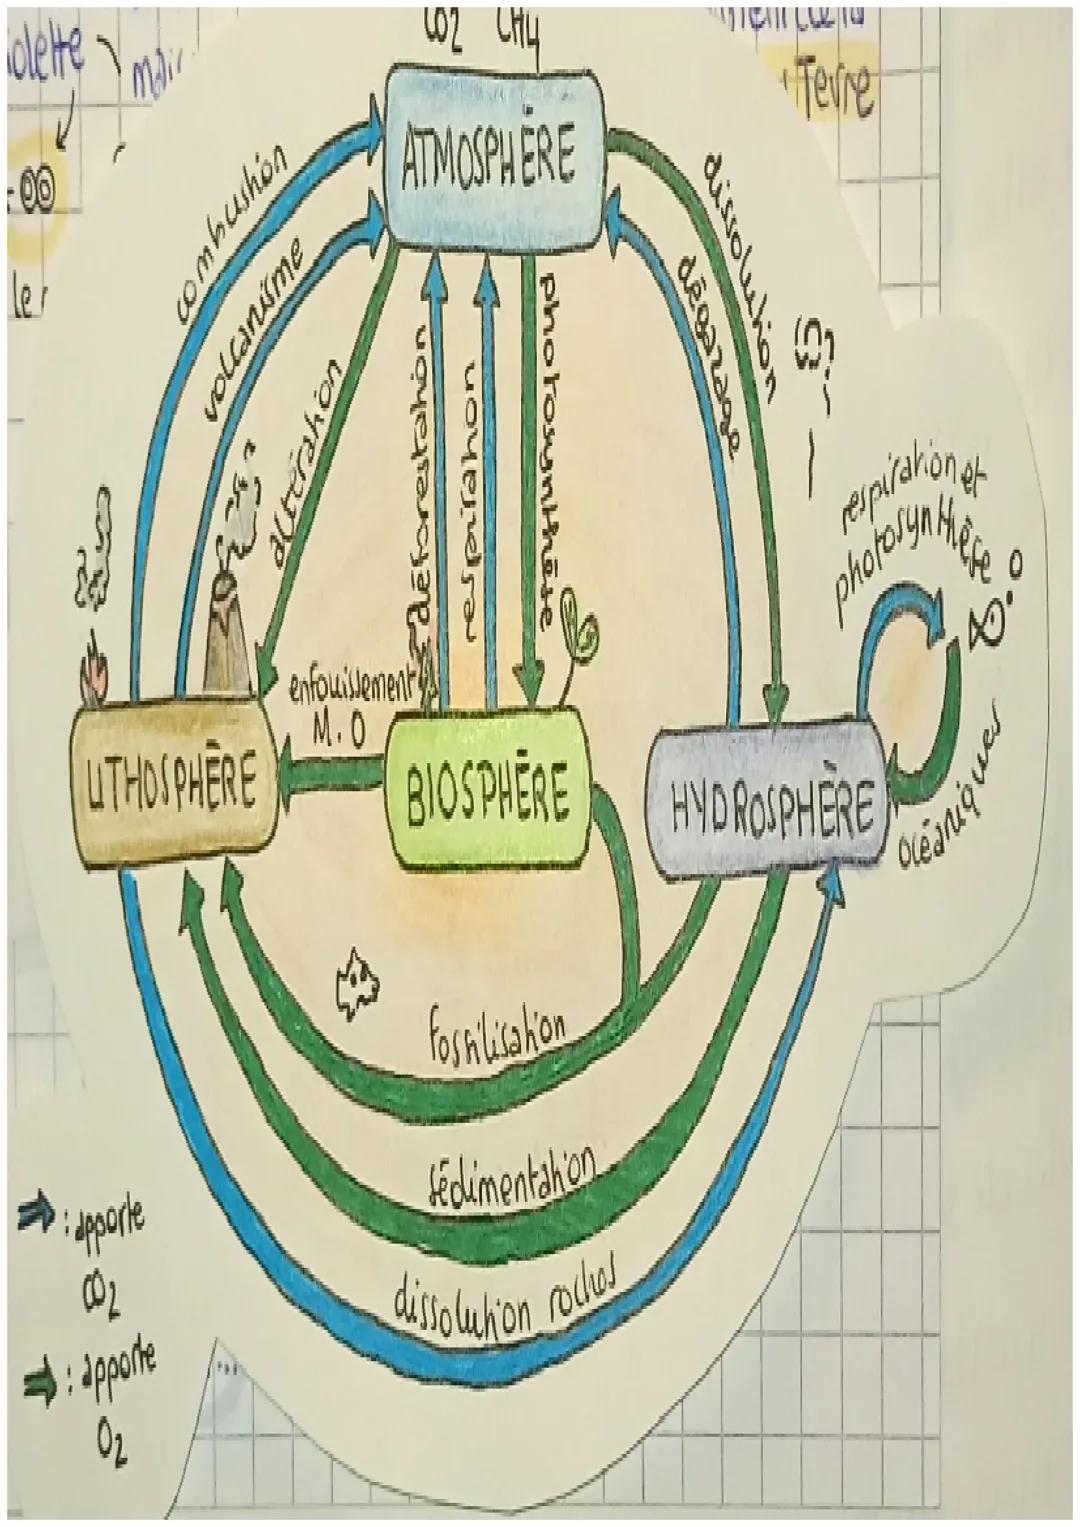 CO2 CH4
Terre
ATMOSPHÈRE
combustion
volcanisme
altération
déforestation
respiration
photosynthèse
dissolution
dégazage
respiration et
photosynthèse
océaniques
enfouissement
M.O
LITHOSPHÈRE
BIOSPHÈRE
HYDROSPHÈRE
fossilisation
sédimentation
dissolution roches
: apporte
CO2
: apporte
O2